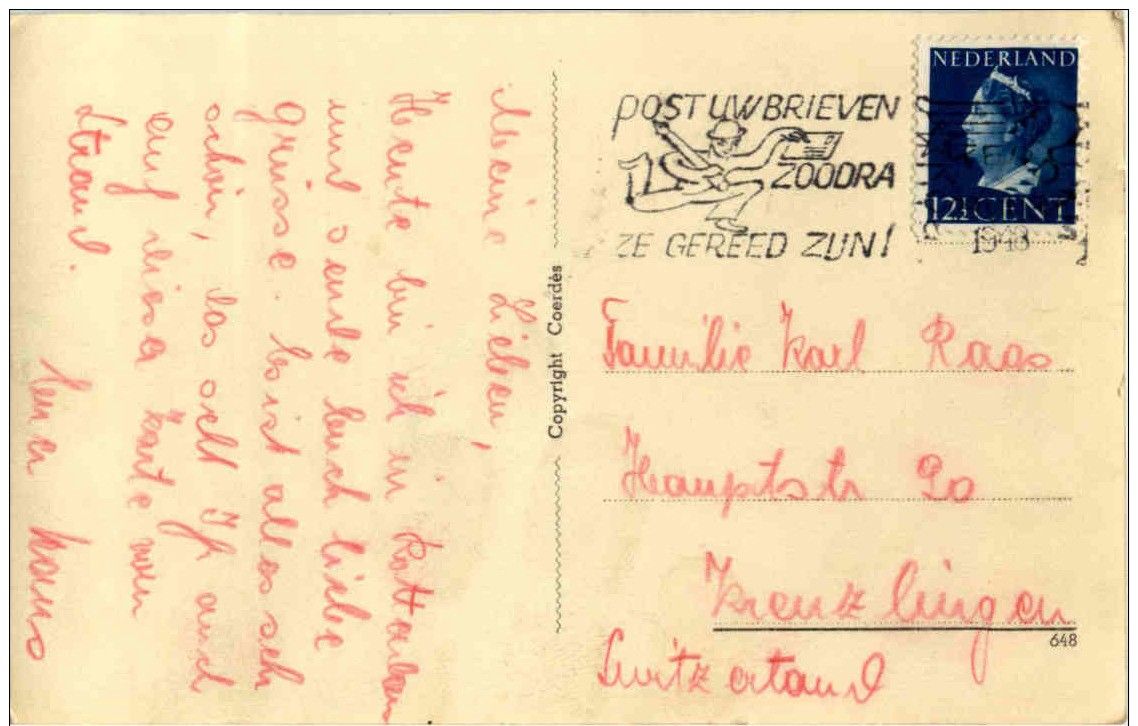 Meine Lieben,
Heute bin ich in Rotterdam
und sende Euch liebe
Grüsse. es ist alles sehr
schön, das seht Ihr auch
auf dieser Karte vom
Strand.
Euer Hans
Copyright Coerdès
POST UW BRIEVEN
ZOODRA
ZE GEREED ZIJN!
NEDERLAND
12½ CENT
1948
Familie Karl Raas
Hauptstr
Kreuzlingen
648
Switzerland